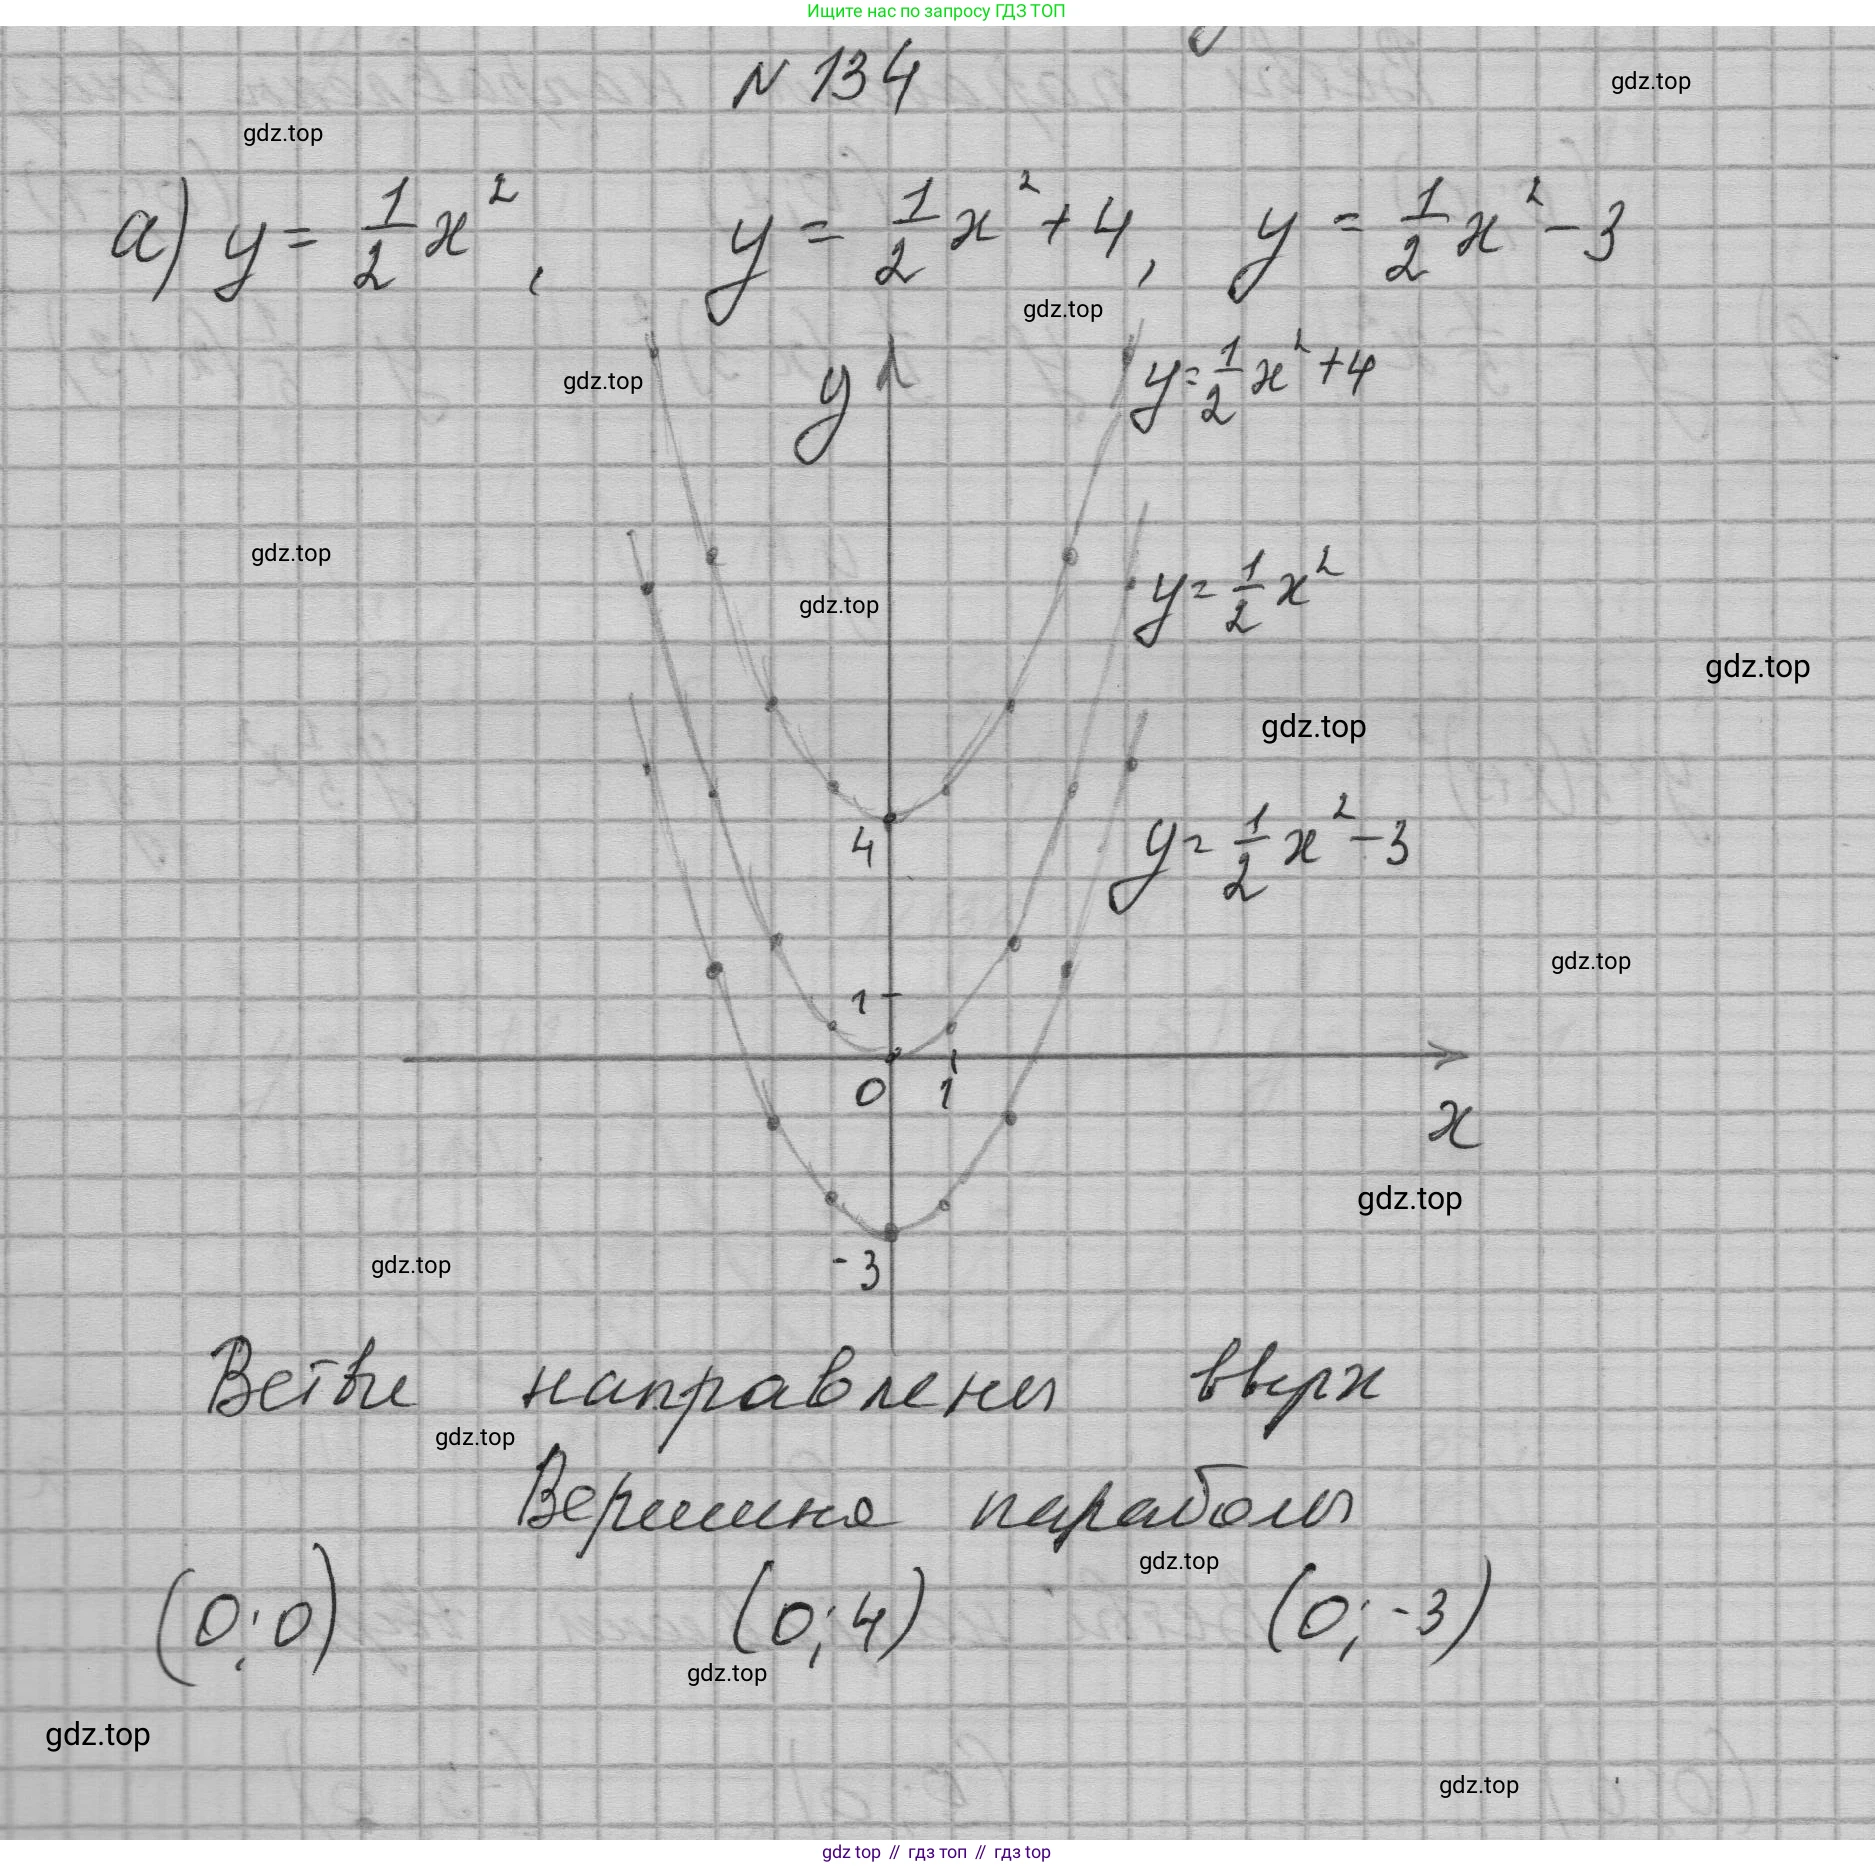 Ищите нас по запросу ГДЗ ТОП
N 134
gdz.top
gdz.top
а) y = 1/2 x², y = 1/2 x² + 4, y = 1/2 x² - 3
gdz.top
y y = 1/2 x² + 4
gdz.top
gdz.top
y = 1/2 x²
gdz.top
gdz.top
gdz.top
4
y = 1/2 x² - 3
gdz.top
1
0 1
x
gdz.top
gdz.top
-3
Ветви направлены вверх
gdz.top
Вершина параболы
gdz.top
(0; 0) (0; 4) (0; -3)
gdz.top
gdz.top
gdz.top
gdz top // гдз топ // gdz top